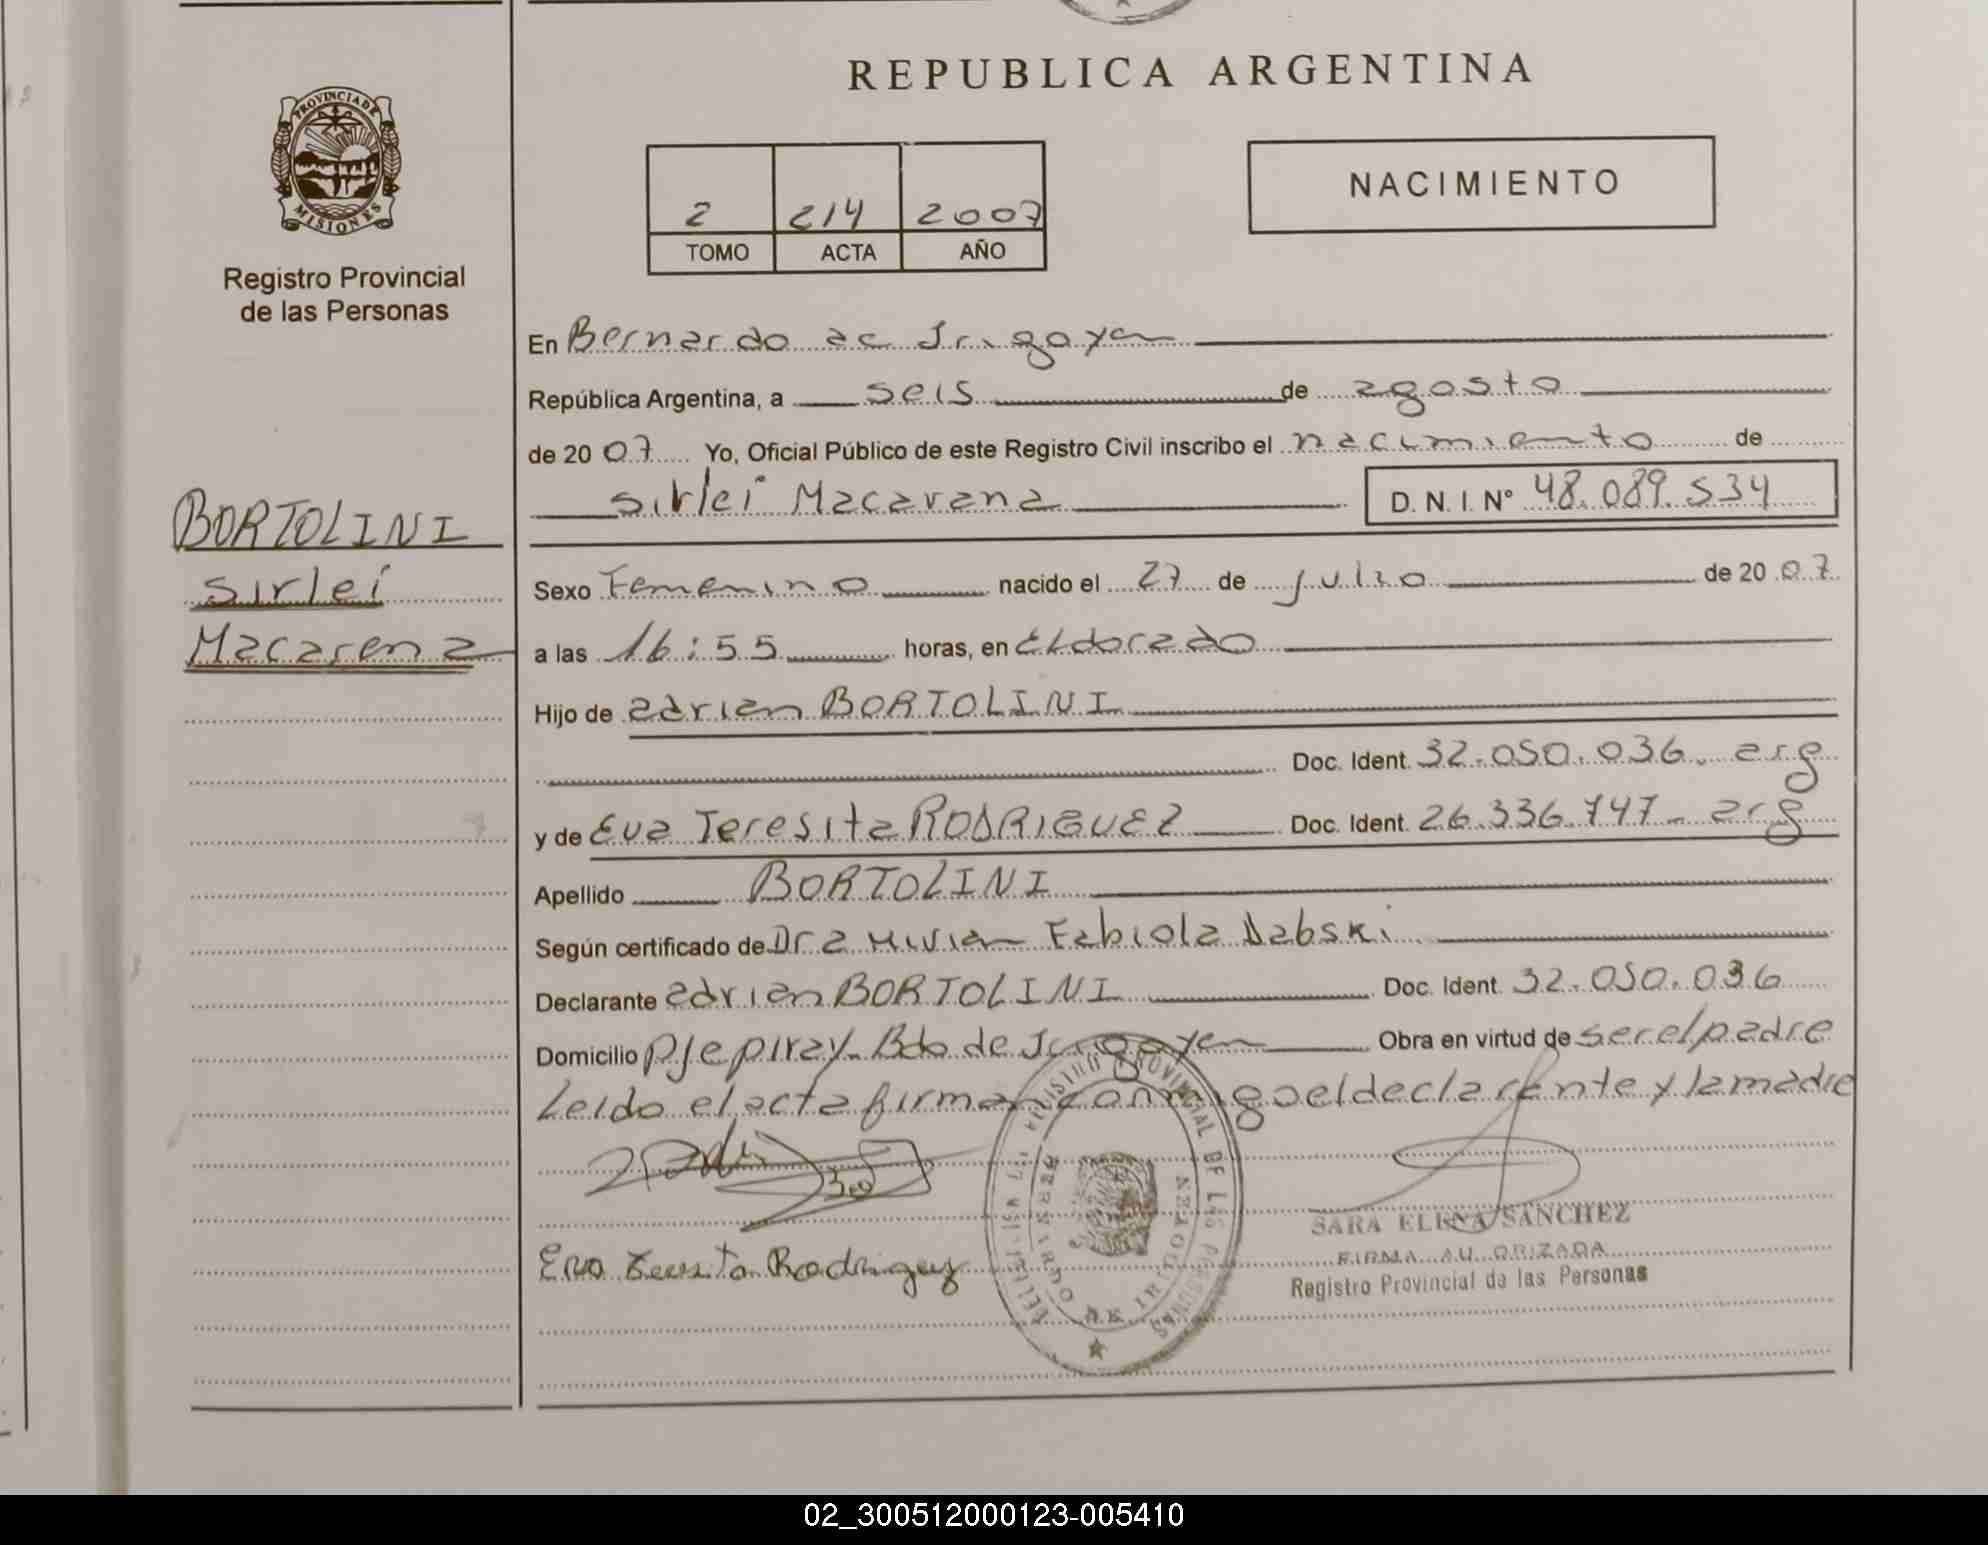 REPUBLICA ARGENTINA
PROVINCIA DE
MISIONES
Registro Provincial
de las Personas
2 214 2007
TOMO ACTA AÑO
NACIMIENTO
En Bernardo de Irigoyen
República Argentina, a seis de agosto
de 2007 Yo, Oficial Público de este Registro Civil inscribo el nacimiento de
Sirlei Macarena D.N.I. Nº 48.089.534
BORTOLINI
Sirlei
Macarena
Sexo Femenino nacido el 27 de julio de 2007
a las 16:55 horas, en Eldorado
Hijo de adrian BORTOLINI
Doc. Ident. 32.050.036. arg
y de Eva Teresita RODRIGUEZ Doc. Ident. 26.336.747- arg
Apellido BORTOLINI
Según certificado de Dra Mivian Fabiola Dabski
Declarante adrian BORTOLINI Doc. Ident. 32.050.036
Domicilio Pje piray- Bdo de Irigoyen Obra en virtud de ser el padre
Leido el acta firman conmigo el declarante y la madre
Eva Teresita Rodriguez
REGISTRO PROVINCIAL DE LAS PERSONAS
SARA ELENA SANCHEZ
FIRMA AUTORIZADA
Registro Provincial de las Personas
02_300512000123-005410